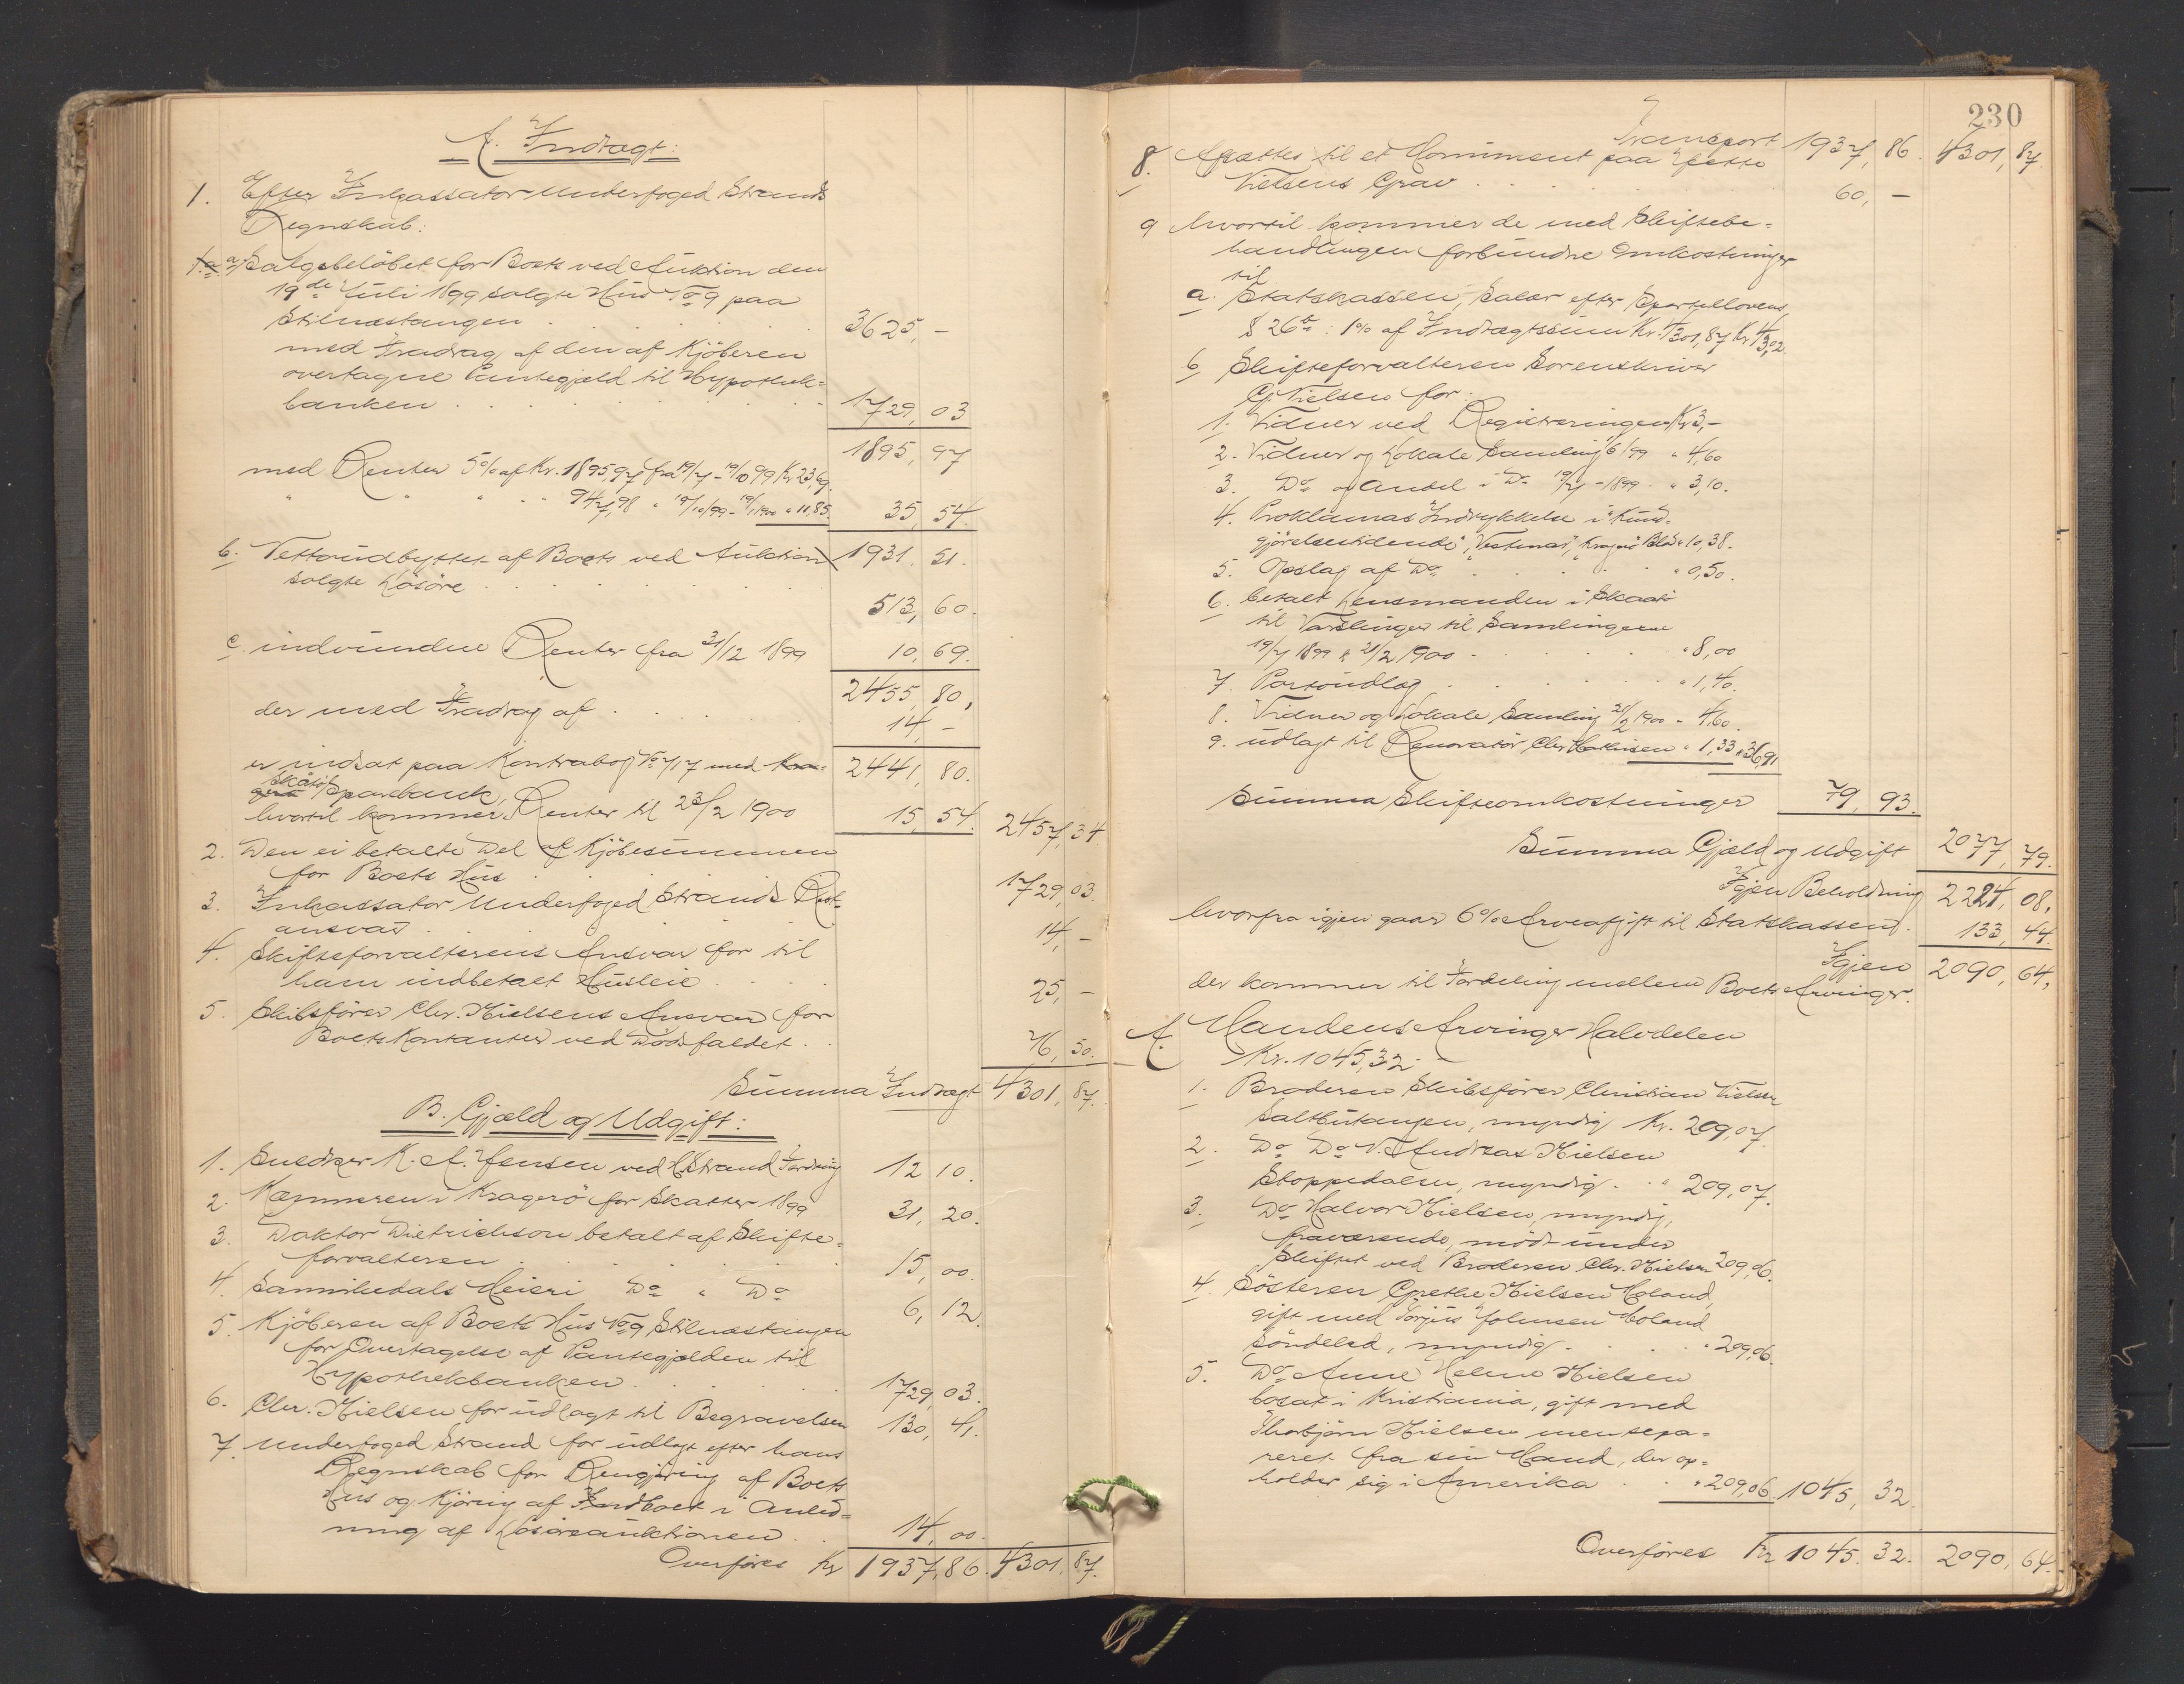 A. Indtægt:
1. Efter Inkassator Underfoged Strands
Regnskab:
a. Salgsbeløbet for Boets ved Auktion den
19de Juli 1899 solgte Hus No 9 paa
Stilnæstangen . . . 3625,-
med Fradrag af den af Kjøberen
overtagne Pantegjæld til Hypothek-
banken . . . 1729,03
1895,97
med Renter 5% af Kr. 1895,97 fra 19/7 - 19/10 99 Kr 23,69
" " " " 947,98 " 19/10/99 - 19/1 1900 " 11,85. 35,54.
1931.51.
b. Nettoudbyttet af Boets ved Auktion
solgte Løsøre . . . 513,60.
c. indvundne Renter fra 31/12 1899 10,69.
2455,80,
der med Fradrag af . . . 14,-
er indsat paa Kontrabog No 717 med 2441,80.
Skåtø Sparebank,
hvortil kommer Renter til 23/2 1900 15,54. 2457,34
2. Den ei betalte Del af Kjøbesummen
for Boets Hus . . . 1729,03.
3. Inkassator Underfoged Strands Rest-
ansvar . . . 14,-
4. Skifteforvalterens Ansvar for til
ham indbetalt Husleie . . . 25,-
5. Skibsfører Chr. Nielsens Ansvar for
Boets Kontanter ved Dødsfaldet . . 76,50.
Summa Indtægt 4301,87.
B. Gjæld og Udgift:
1. Snedker K. A. Jensen ved H Strand Fordring 12 10.
2. Kæmneren i Kragerø for Skatter 1899 31,20.
3. Doktor Dietrichson betalt af Skifte-
forvalteren . . . 15,00.
4. Sannikedals Meieri Do " Do 6,12.
5. Kjøberen af Boets Hus No 9 Stilnæstangen
for Overtagelse af Pantegjælden til
Hypothekbanken . . . 1729,03.
6. Chr. Nielsen for udlagt til Begravelsen 130,41.
7. Underfoged Strand for udlagt efter hans
Regnskab for Rengjøring af Boets
Hus og Kjøring af Indboet i Anled-
ning af Løsøreauktionen . . 14,00.
Overføres Kr 1937,86. 4301,87.
230
Transport 1937,86. 4301,87.
8. Afsættes til et Monument paa Jette
Nielsens Grav . . . 60,-
9 hvortil kommer de med Skiftebe-
handlingen forbundne Omkostninger
til
a. Statskassen, Salær efter Sportellovens
§ 26 : 1% af Indtægtssum Kr. 4301,87 Kr 43,02
b Skifteforvalteren Sorenskriver
Cj. Nielsen for:
1. Vidner ved Registreringen Kr 3,-
2. Vidner og Lokale Samling /6/99 " 4,60
3. Do og Andel i Do 19/7 - 1899 . " 3,10.
4. Proklamas Indrykkelse i "Kund-
gjørelsestidende", "Vestmar", Kragerø Blad " 10,38.
5. Opslag af Do . . . " 0,50.
6. betalt Lensmanden i Skaatø
til Varslinger til Samlingerne
19/7 1899 & 21/2 1900 . . . " 8,00
7. Portoudlæg . . . " 1,40.
8. Vidner og Lokale Samling 21/2 1900 " 4,60.
9. udlagt til Renovatør Chr Mathisen " 1,33 " 36,91
Summa Skifteomkostninger 79,93.
Summa Gjæld og Udgift 2077,79.
Igjen Beholdning 2224,08,
hvorfra igjen gaar 6% Arveafgift til Statskassen . 133,44.
Igjen 2090,64,
der kommer til Fordeling mellem Boets Arvinger.
A. Mandens Arvinger Halvdelen
Kr. 1045,32.-
1. Broderen Skibsfører Christian Nielsen
Saltbutangen, myndig Kr. 209,07.
2. Do Do N. Andreas Nielsen
Stoppedalen, myndig . . " 209,07.
3. Do Halvor Nielsen, myndig,
fraværende, mødt under
Skiftet ved Broderen Chr. Nielsen 209,06.
4. Søsteren Grethe Nielsen Moland,
gift med Torjus Johnsen Moland
Søndeled, myndig . . . " 209,06.
5. Do Anne Helene Nielsen
bosat i Kristiania, gift med
Thorbjørn Nielsen men sepa-
reret fra sin Mand, der op-
holder sig i Amerika . . " 209,06 1045,32.
Overføres Kr 1045.32. 2090,64.